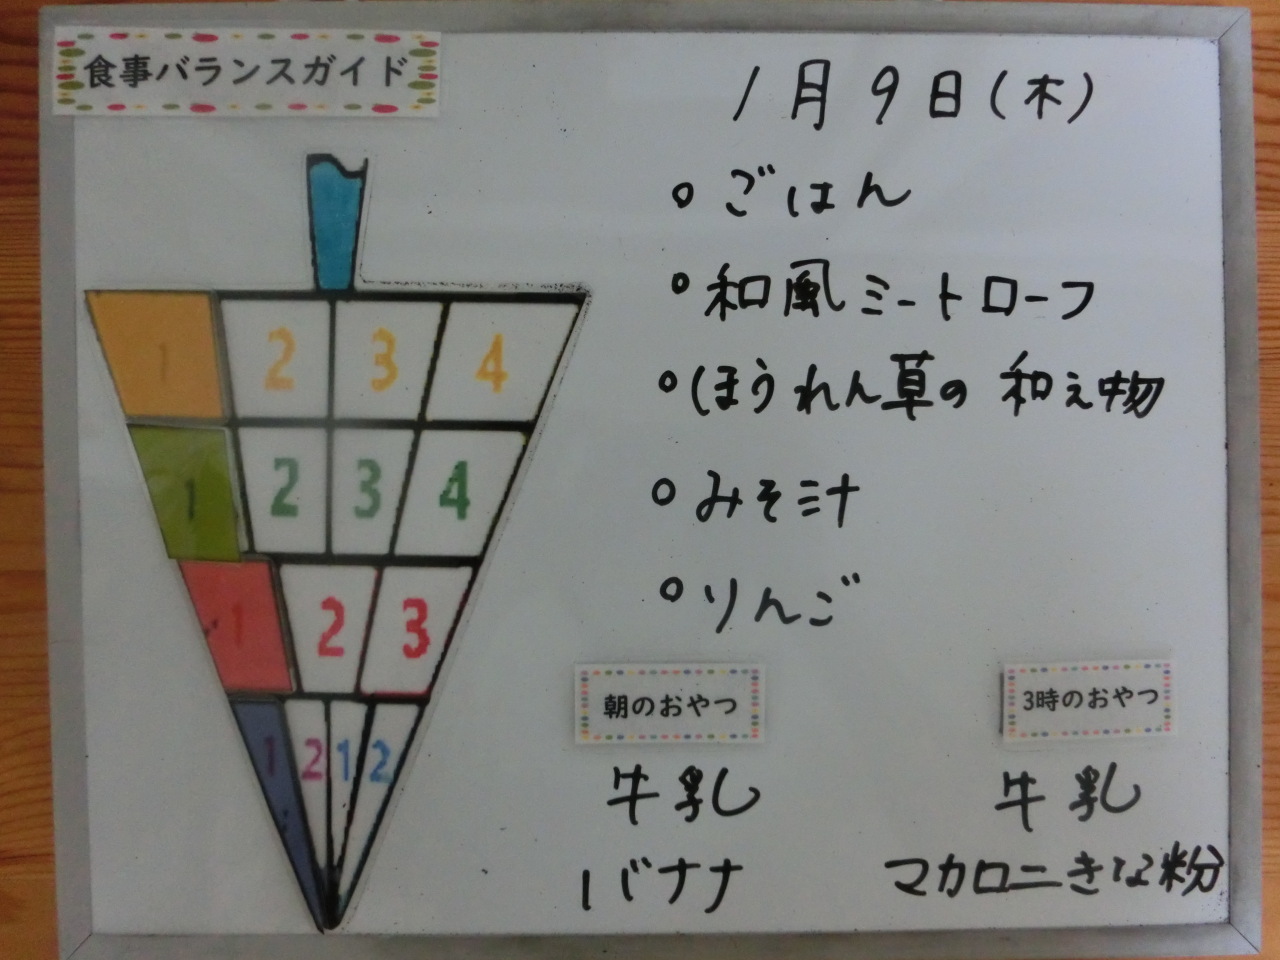 食事バランスガイド
1月9日(木)
。ごはん
。和風ミートローフ
。ほうれん草の和え物
。みそ汁
。りんご
1 2 3 4
1 2 3 4
1 2 3
1 2 1 2
朝のおやつ
牛乳
バナナ
3時のおやつ
牛乳
マカロニきな粉